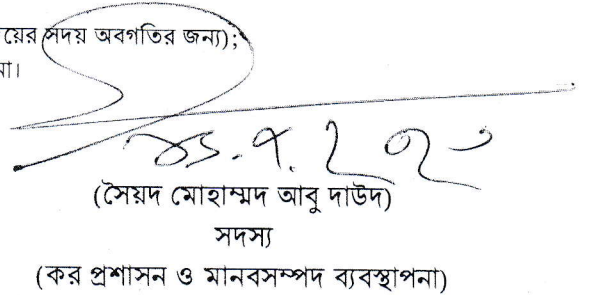 য়ের সদয় অবগতির জন্য);
না।
(সৈয়দ মোহাম্মদ আবু দাউদ)
সদস্য
(কর প্রশাসন ও মানবসম্পদ ব্যবস্থাপনা)